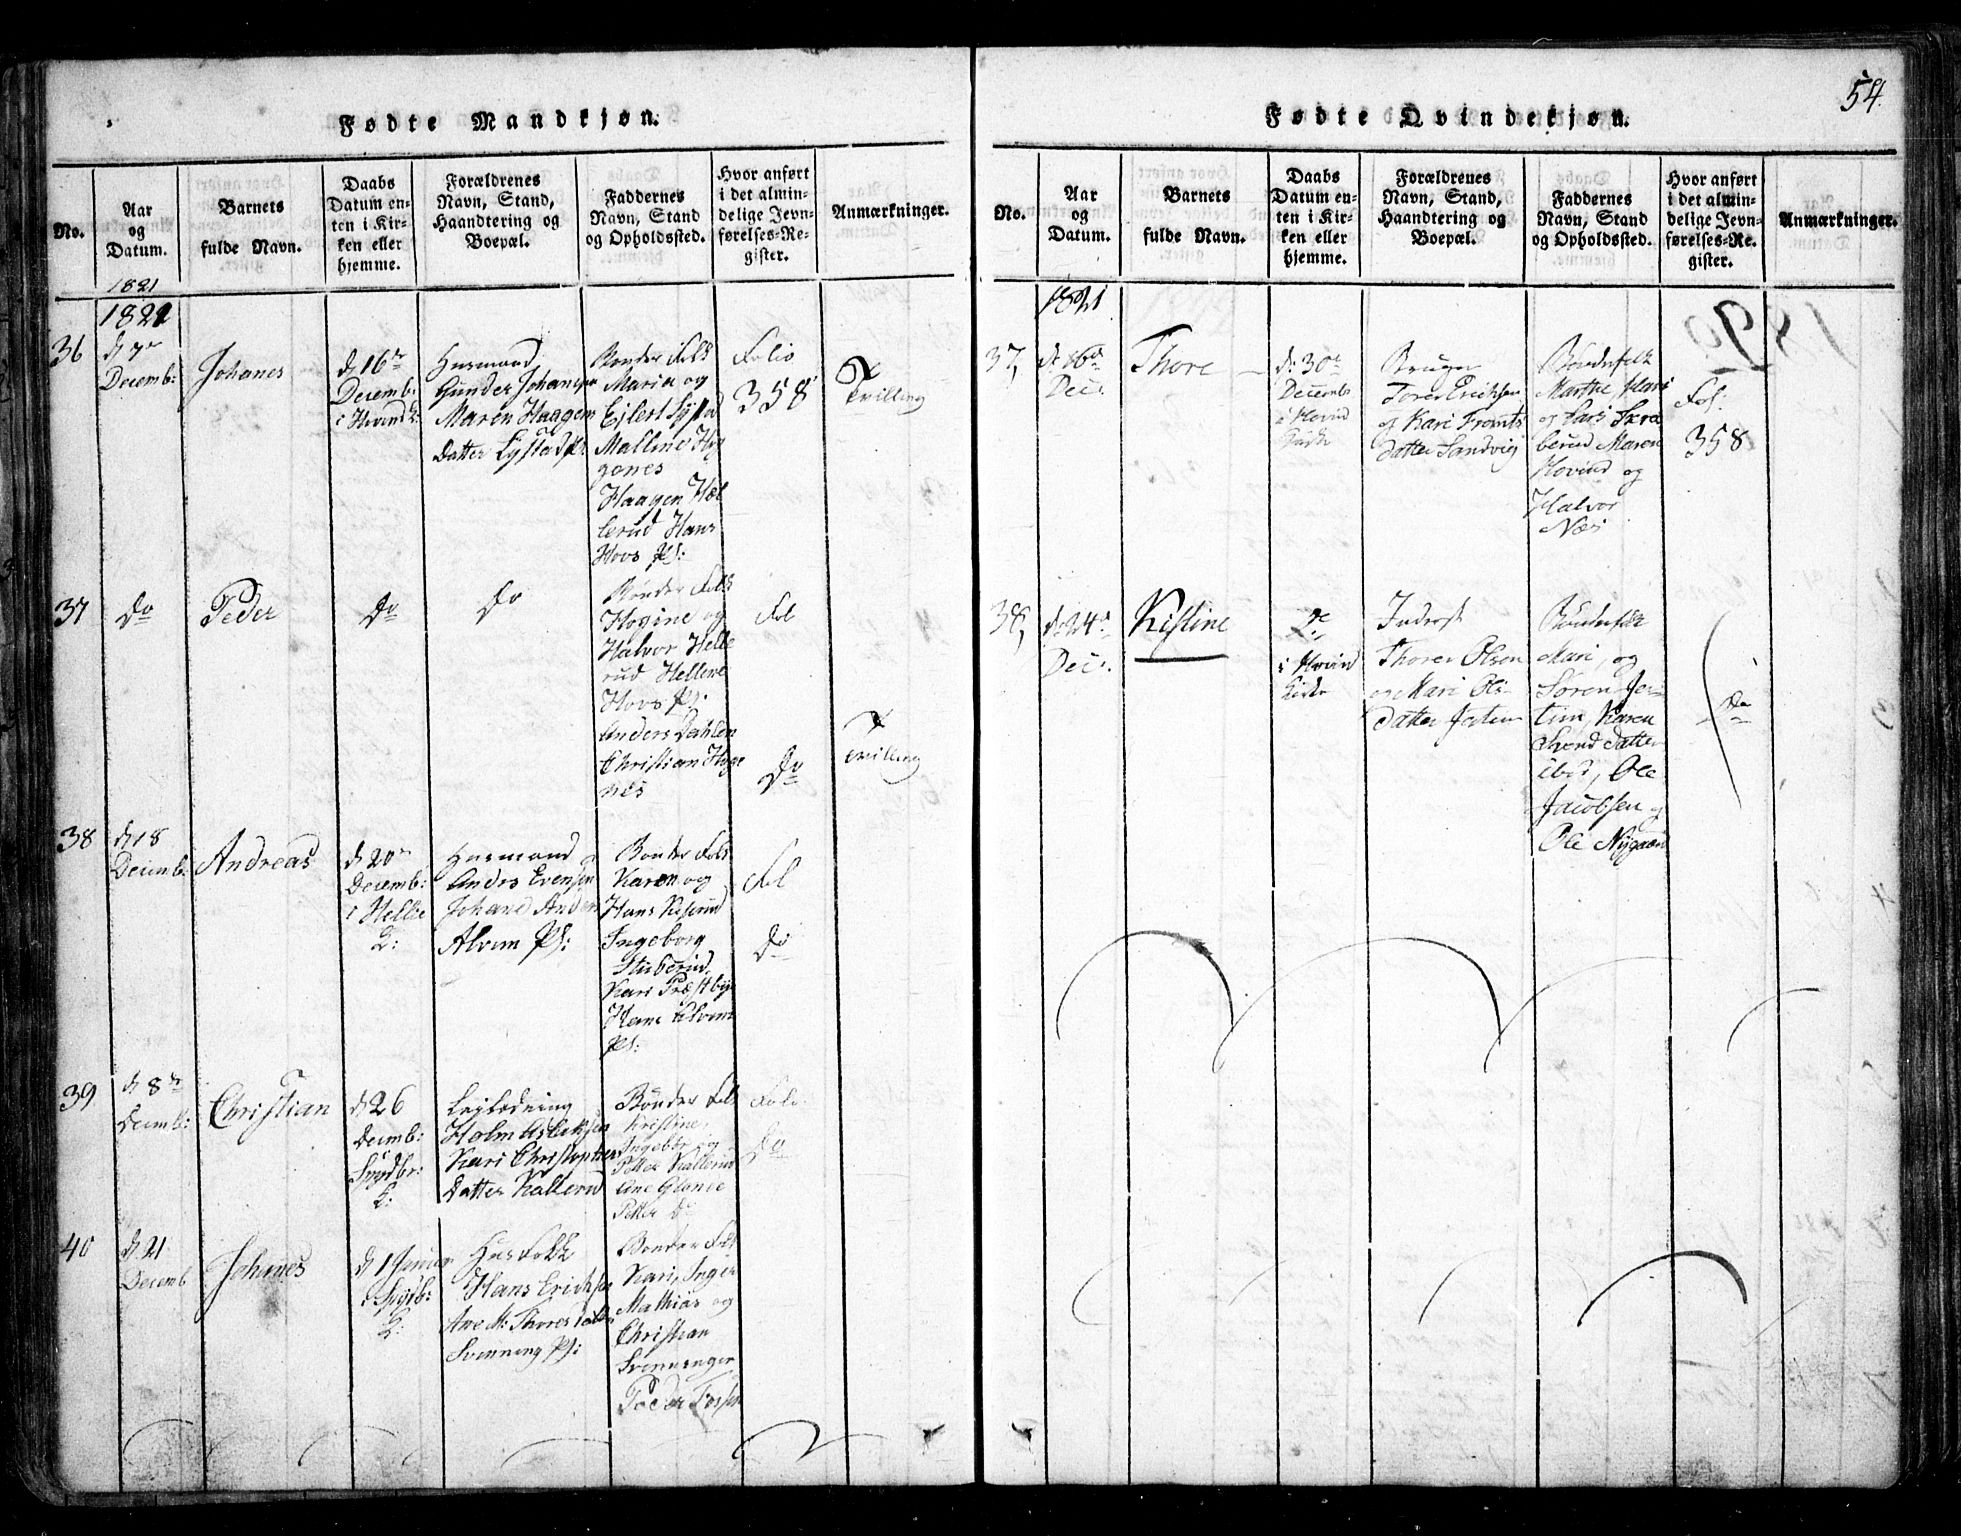 54.
Fødte Mandkjøn.
No.
Aar
og
Datum.
Barnets
fulde Navn.
Daabs
Datum en-
ten i Kir-
ken eller
hjemme.
Forældrenes
Navn, Stand,
Haandtering og
Boepæl.
Faddernes
Navn, Stand
og Opholdssted.
Hvor anført
i det almin-
delige Jevn-
førelses-Re-
gister.
Anmærkninger.
1821
1821
36
Decemb:
Johanes
d 16de
Decemb:
Husmand
Gunder Johansen
Maren Haagens
Datter Lystad
Bønder Folk
Maria og
Eilert Lystad
Malline Hog
genes
Haagen Hæl
lerud Hans
Hovs Pl:
Folio
358
Tvilling
37
Do
Peder
Do
Do
Bønder Folk
Hogine og
Halvor Helle
rud Hellene
Hovs Pl:
Anders Dahlen
Christian Hoge
nes
Fol
Do
tvilling
38
d 18
Decemb:
Andreas
d 20de
Decemb:
i Hellie
K:
Husmand
Andrs Evensen
Johane Anders
Alvim Pl:
Bønder Folk
Karen og
Hans
Ingeborg
Stuberud
Kari Præstbye
Hans Alvim
Pl:
Fol
Do
39
d 8de
Decemb:
Christian
d 26
Decemb:
Spydbr:
K:
Holm Aslaksen
Kari Christophers
Datter Kallerud
Bønder Folk
Kristine,
Ingebor og
Petter Kallerud
Ane
Petter Do
Folio
Do
40
d 21
Decemb
Johanes
d 1 Januar
i Spydb:
K:
Husfolk
Hans Erichsen
Ane M: Thoresdatter
Svenning Pl:
Bønder Folk
Kari, Inger
Mathias og
Christian
Svennenger
Peder
Fødte Qvindekjøn.
No.
Aar
og
Datum.
Barnets
fulde Navn.
Daabs
Datum en-
ten i Kir-
ken eller
hjemme.
Forældrenes
Navn, Stand,
Haandtering og
Boepæl.
Faddernes
Navn, Stand
og Opholdssted.
Hvor anført
i det almin-
delige Jevn-
førelses-Re-
gister.
Anmærkninger.
1821
37,
d: 16de
Dec:
Thore
d: 30te
Decemb
i Hovind
Kirke
Bruger
Torer Erichsen
og Kari Frants
datter Sandvig
Bønderfolk
Marthe, Kari
og Lars Skre
berud Maren
Hovind og
Halvor
Næs
Fol:
358
38,
d: 24de
Dec:
Kistine
do
i Hovind
Kirke
Inderst
Thorer Olsen
og Kari Ols
datter Jertum
Bønderfolk
Kari, og
Søren Jer-
tum, Karen
Svend datter
ibid, Ole
Jacobsen og
Ole Nygaard
do